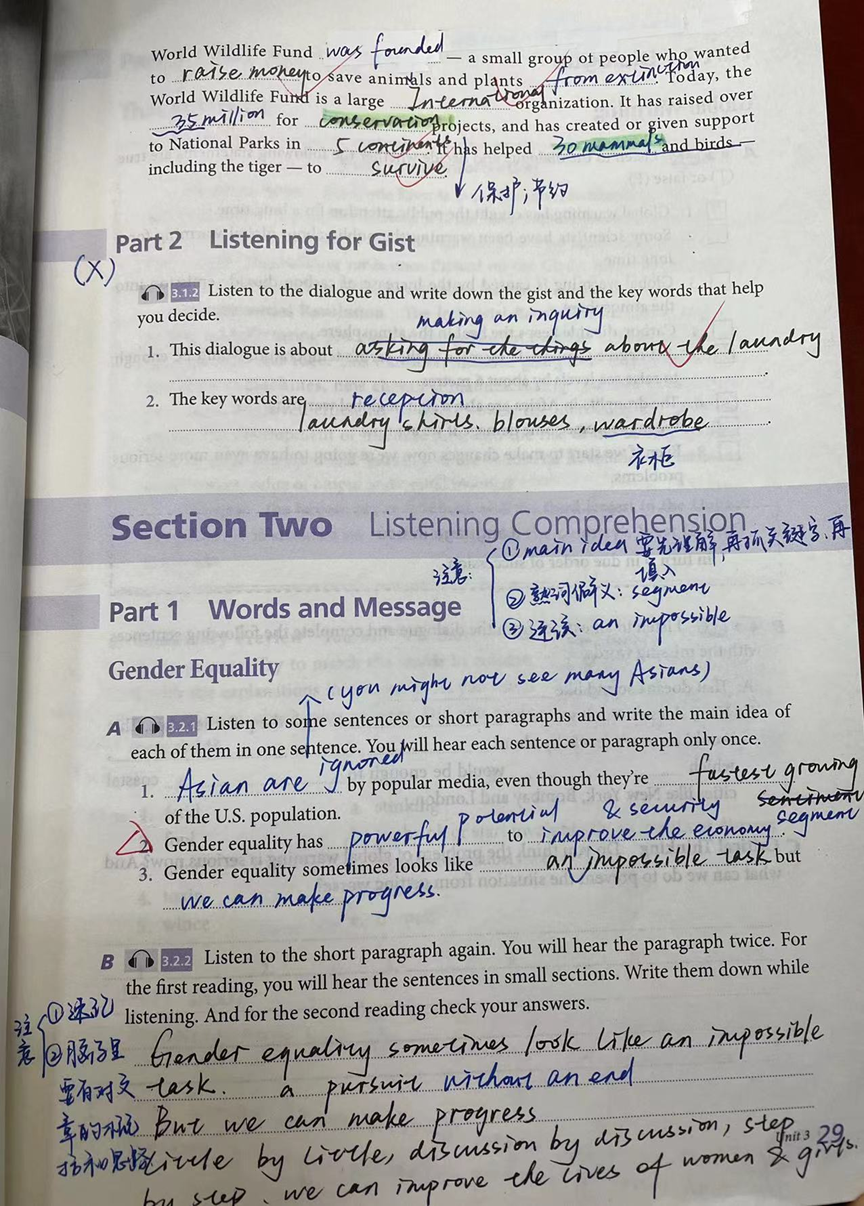 World Wildlife Fund was founded — a small group of people who wanted
to raise money to save animals and plants from extinction. Today, the
World Wildlife Fund is a large International organization. It has raised over
35 million for conservation projects, and has created or given support
to National Parks in 5 continents. It has helped 30 mammals and birds
including the tiger — to survive
保护;节约
Part 2 Listening for Gist
(X)
3.1.2 Listen to the dialogue and write down the gist and the key words that help
you decide.
making an inquiry
1. This dialogue is about asking for the things about the laundry
2. The key words are reception
laundry shirts. blouses, wardrobe
衣柜
Section Two Listening Comprehension
注意: ① main idea 要先理解,再抓关键字,再
填入
② 熟词僻义: segment
③ 连读: an impossible
Part 1 Words and Message
Gender Equality
(you might not see many Asians)
A 3.2.1 Listen to some sentences or short paragraphs and write the main idea of
each of them in one sentence. You will hear each sentence or paragraph only once.
1. Asian are ignored by popular media, even though they're fastest growing
sentiment segment
of the U.S. population.
2. Gender equality has powerful potential to improve the economy & security
3. Gender equality sometimes looks like an impossible task but
we can make progress.
B 3.2.2 Listen to the short paragraph again. You will hear the paragraph twice. For
the first reading, you will hear the sentences in small sections. Write them down while
listening. And for the second reading check your answers.
注意 ① 速记
② 脑子里
要有对文
章的
Gender equality sometimes look like an impossible
task. a pursuit without an end
But we can make progress
Little by little, discussion by discussion, step
by step. we can improve the lives of women & girls.
Unit 3 29